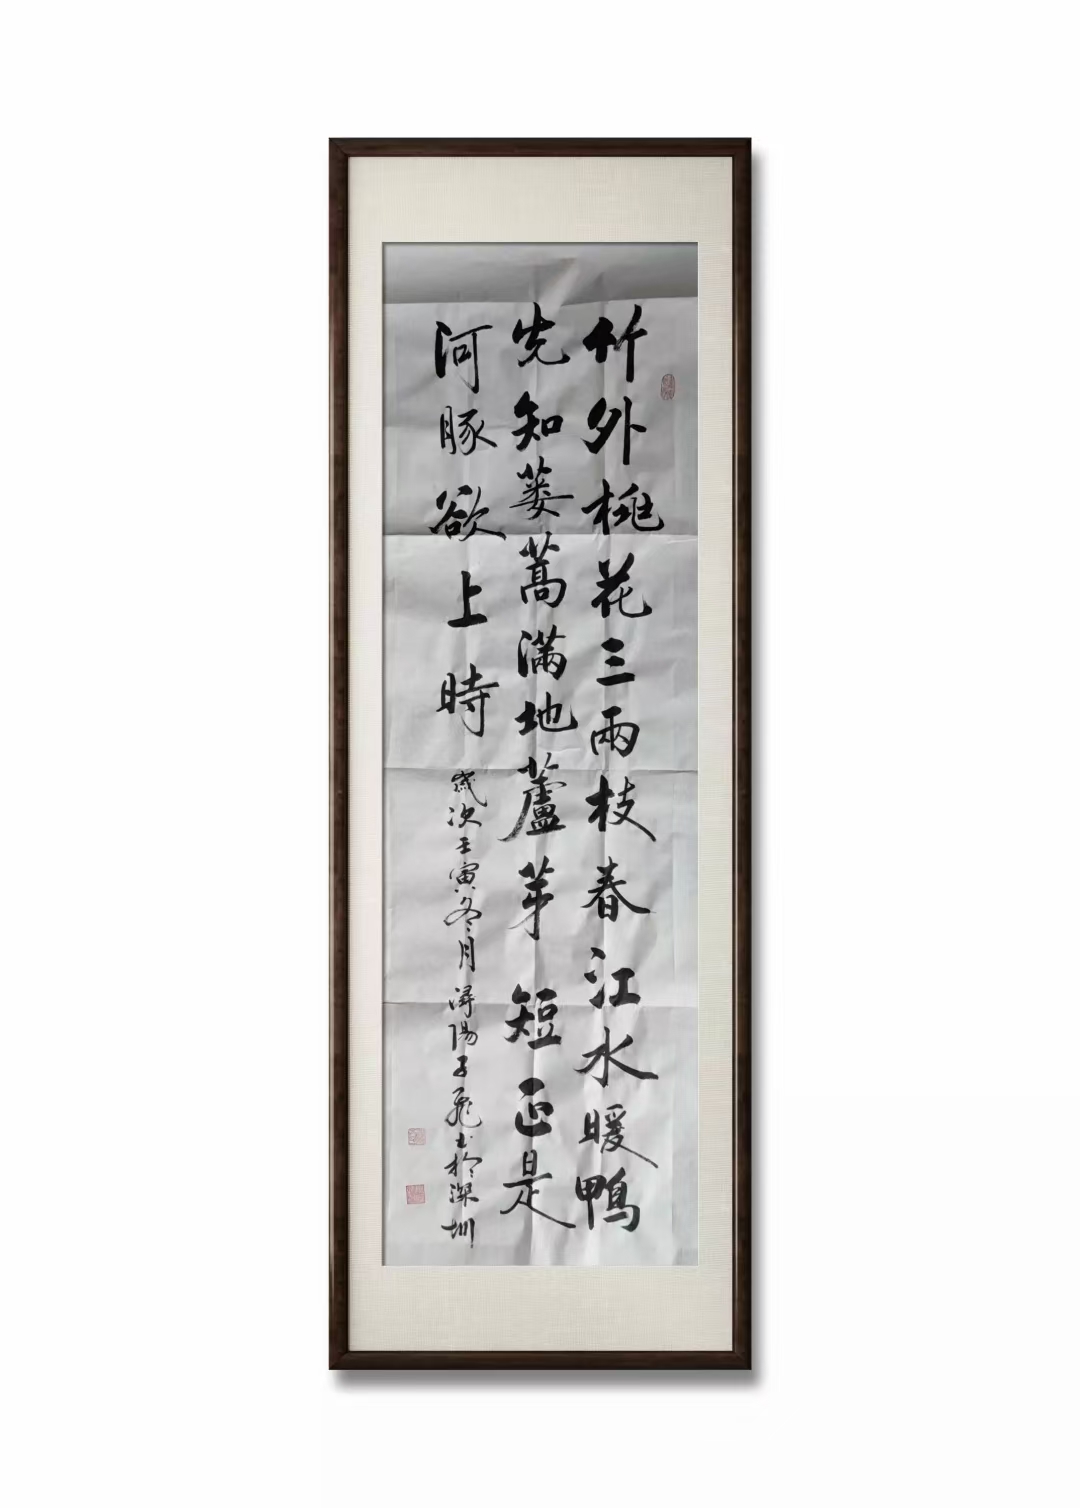 竹外桃花三兩枝春江水暖鴨
先知蔞蒿滿地蘆芽短正是
河豚欲上時
歲次壬寅冬月潯陽子飛書於深圳